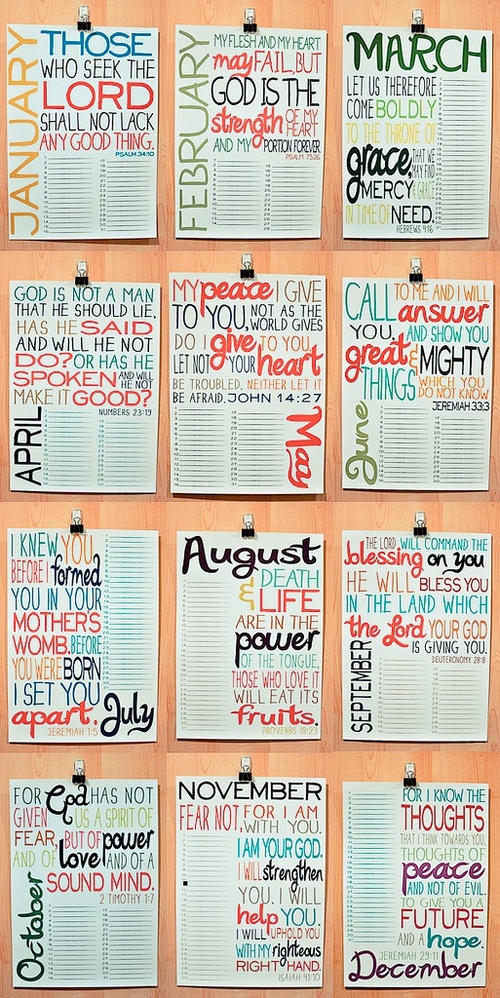 JANUARY
THOSE
WHO SEEK THE
LORD
SHALL NOT LACK
ANY GOOD THING.
PSALM 34:10
FEBRUARY
MY FLESH AND MY HEART
may FAIL, BUT
GOD IS THE
strength OF MY HEART
AND MY PORTION FOREVER
PSALM 73:26
MARCH
LET US THEREFORE
COME BOLDLY
TO THE THRONE OF
grace, THAT WE MAY FIND
MERCY & GRACE
IN TIME OF NEED.
HEBREWS 4:16
GOD IS NOT A MAN
THAT HE SHOULD LIE,
HAS HE SAID
AND WILL HE NOT
DO? OR HAS HE
SPOKEN AND WILL HE NOT
MAKE IT GOOD?
NUMBERS 23:19
APRIL
MY peace I GIVE
TO YOU, NOT AS THE WORLD GIVES
DO I give TO YOU.
LET NOT YOUR heart
BE TROUBLED, NEITHER LET IT
BE AFRAID. JOHN 14:27
May
CALL TO ME AND I WILL
answer
YOU, AND SHOW YOU
great & MIGHTY
THINGS WHICH YOU DO NOT KNOW
JEREMIAH 33:3
June
I KNEW YOU
BEFORE I formed
YOU IN YOUR
MOTHER'S
WOMB. BEFORE
YOU WERE BORN
I SET YOU
apart.
JEREMIAH 1:5
July
August
DEATH
& LIFE
ARE IN THE
power
OF THE TONGUE,
THOSE WHO LOVE IT
WILL EAT ITS
fruits.
PROVERBS 18:23
THE LORD WILL COMMAND THE
blessing on you
HE WILL BLESS YOU
IN THE LAND WHICH
the Lord YOUR GOD
IS GIVING YOU.
DEUTERONOMY 28:8
SEPTEMBER
FOR God HAS NOT
GIVEN US A SPIRIT OF
FEAR, BUT OF power
AND OF love AND OF A
SOUND MIND.
2 TIMOTHY 1:7
October
NOVEMBER
FEAR NOT, FOR I AM
WITH YOU.
I AM YOUR GOD.
I WILL strengthen
YOU. I WILL
help YOU.
I WILL UPHOLD YOU
WITH MY righteous
RIGHT HAND.
ISAIAH 41:10
FOR I KNOW THE
THOUGHTS
THAT I THINK TOWARDS YOU,
THOUGHTS OF
peace
AND NOT OF EVIL.
TO GIVE YOU A
FUTURE
AND A hope.
JEREMIAH 29:11
December